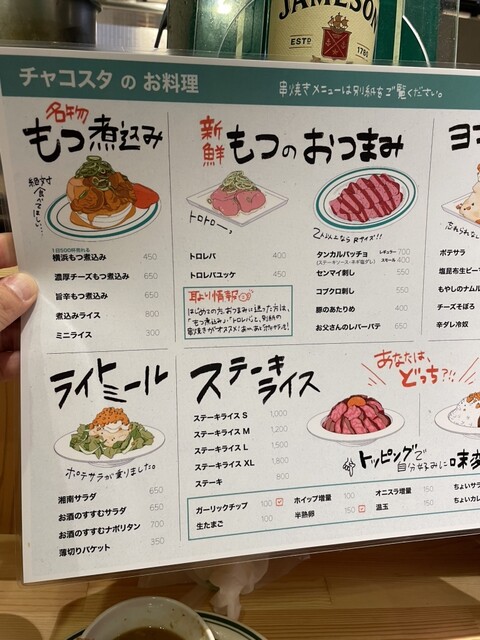 JAMESON
ESTD
1780
チャコスタ の お料理
串焼きメニューは別紙をご覧ください。
名物
もつ煮込み
絶対
食べてほしい…
1日500杯売れる
横浜もつ煮込み 450
濃厚チーズもつ煮込み 650
旨辛もつ煮込み 650
煮込みライス 800
ミニライス 300
新鮮
もつのおつまみ
トロトロ〜、
2人以上なら Rサイズ!!
トロレバ 400
トロレバユッケ 450
耳より情報
はじめての方、おつまみに迷った方は、
"もつ煮込み"・"トロレバ"と、別紙の
串焼きがオススメ!
タンカルパッチョ レギュラー 700
(ステーキソース・ネギ塩ダレ) スモール 400
センマイ刺し 550
コブクロ刺し 550
豚のあたりめ 400
お父さんのレバーパテ 650
ヨコ
忘れられない
ポテサラ
塩昆布生ピー
もやしのナムル
チーズそぼろ
辛ダレ冷奴
ライトミール
ポテサラが乗りました。
湘南サラダ 650
お酒のすすむサラダ 650
お酒のすすむナポリタン 700
薄切りバケット 350
ステーキライス
ステーキライス S 1,000
ステーキライス M 1,200
ステーキライス L 1,500
ステーキライス XL 1,800
ステーキ 800
あなたは、
どっち?!!
トッピングで
自分好みに味変
ガーリックチップ 100
生たまご 100
ホイップ増量 100
半熟卵 150
オニスラ増量 150
温玉 150
ちょいサラ
ちょいカレ